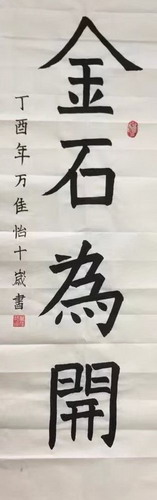 金石為開
丁酉年万佳怡十歲書